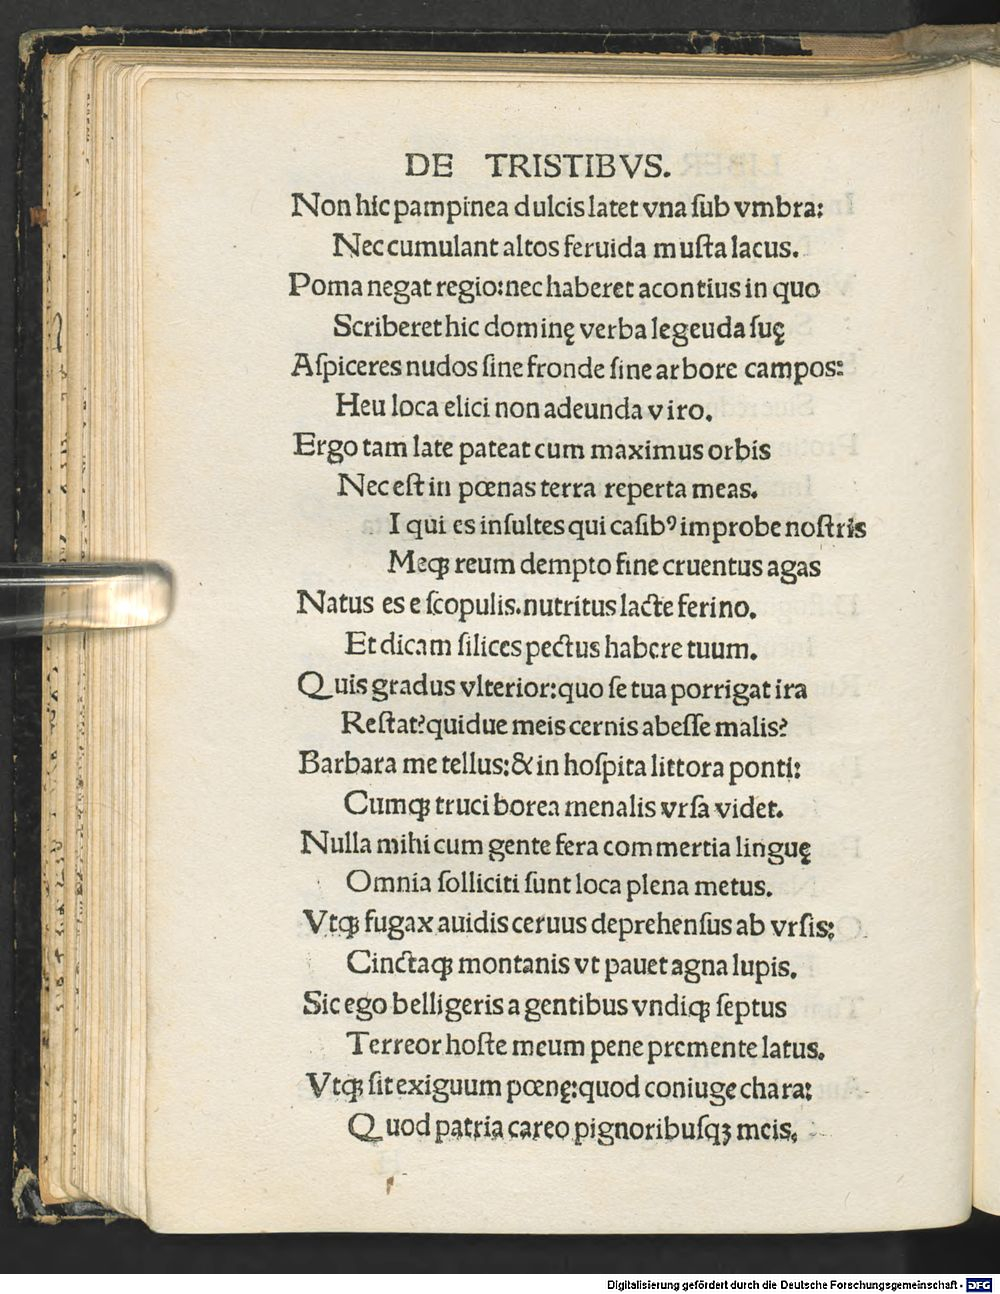 DE TRISTIBVS.
Non hic pampinea dulcis latet vna ſub vmbra:
Nec cumulant altos feruida muſta lacus.
Poma negat regio:nec haberet acontius in quo
Scriberet hic dominę verba legeuda ſuę
Aſpiceres nudos ſine fronde ſine arbore campos:
Heu loca elici non adeunda viro.
Ergo tam late pateat cum maximus orbis
Nec eſt in pœnas terra reperta meas.
I qui es inſultes qui caſibꝰ improbe noſtris
Meqꝫ reum dempto fine cruentus agas
Natus es e ſcopulis.nutritus lacte ferino.
Et dicam ſilices pectus habere tuum.
Quis gradus vlterior:quo ſe tua porrigat ira
Reſtat?quidue meis cernis abeſſe malis?
Barbara me tellus:& in hoſpita littora ponti:
Cumqꝫ truci borea menalis vrſa videt.
Nulla mihi cum gente fera commertia linguę
Omnia ſolliciti ſunt loca plena metus.
Vtqꝫ fugax auidis ceruus deprehenſus ab vrſis:
Cinctaqꝫ montanis vt pauet agna lupis.
Sic ego belligeris a gentibus vndiqꝫ ſeptus
Terreor hoſte meum pene premente latus.
Vtqꝫ ſit exiguum pœnę:quod coniuge chara:
Quod patria careo pignoribuſqꝫ meis.
Digitalisierung gefördert durch die Deutsche Forschungsgemeinschaft - DFG